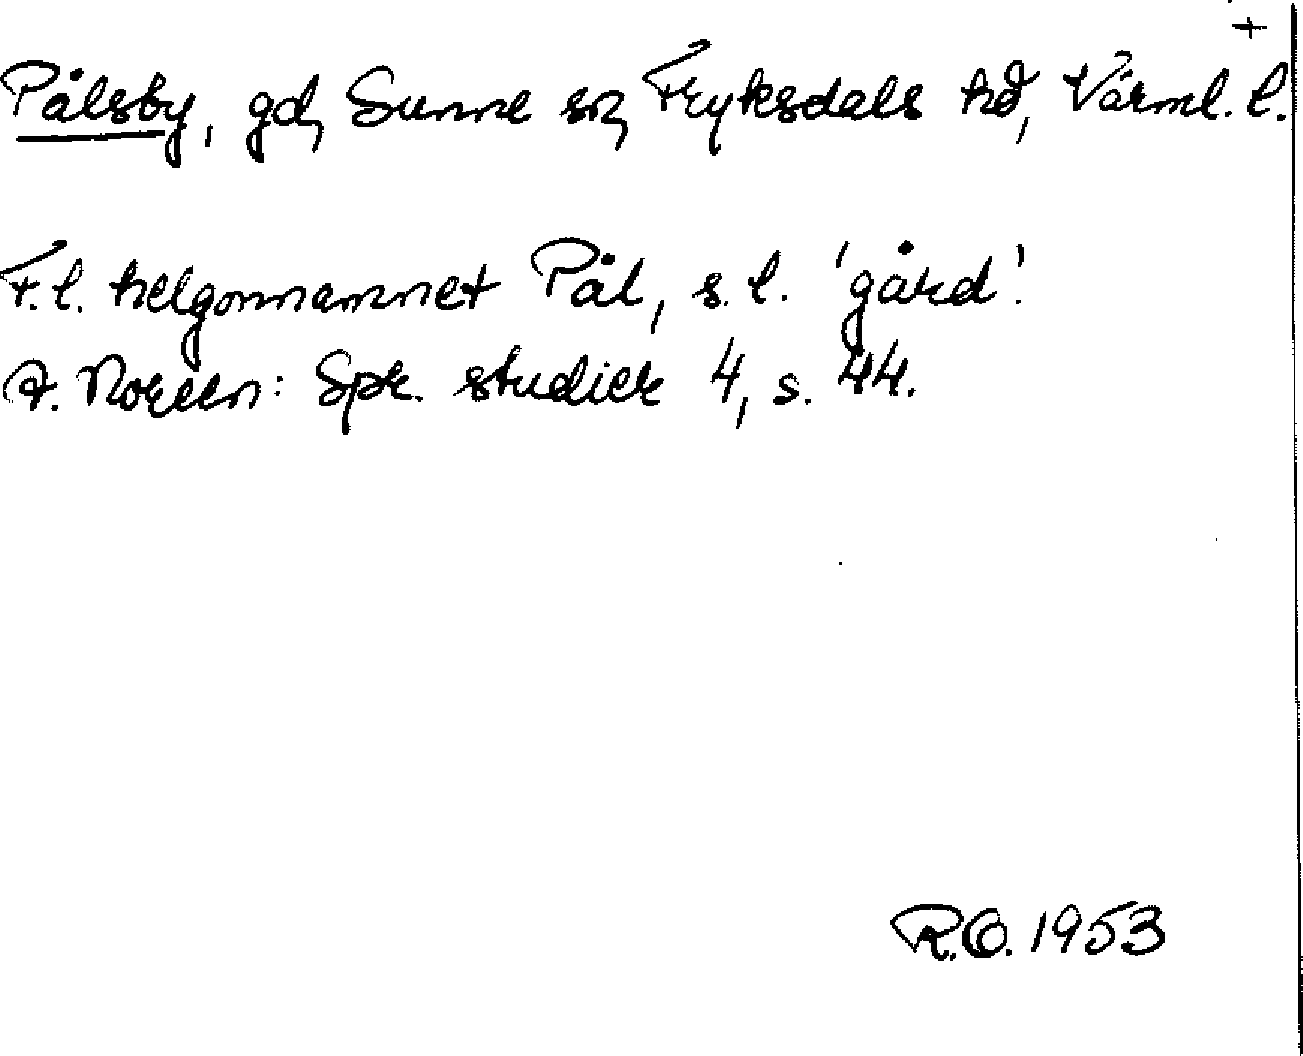 +
Pålsby, gd, Sunne sn, Fryksdals hd, Värml. l.
F.l. helgonnamnet Pål, s.l. 'gård'.
A. Noreen: Spr. studier 4, s. 44.
R.O. 1953